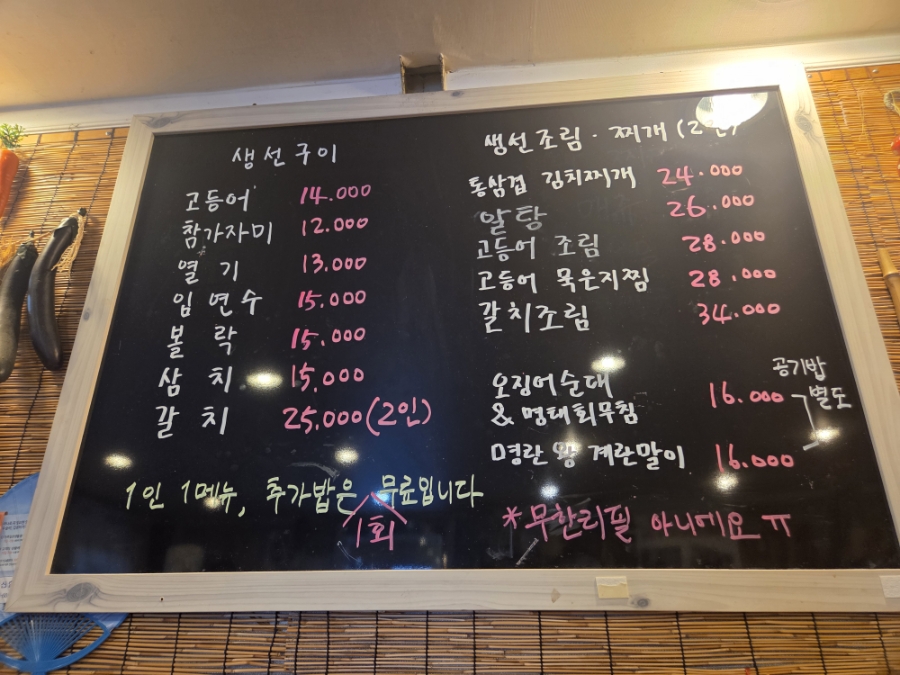 생선구이
고등어 14.000
참가자미 12.000
열기 13.000
임연수 15.000
볼락 15.000
삼치 15.000
갈치 25.000(2인)
1인 1메뉴, 추가밥은 무료입니다
1회
생선조림·찌개(2인)
통삼겹 김치찌개 24.000
알탕 26.000
고등어 조림 28.000
고등어 묵은지찜 28.000
갈치조림 34.000
오징어순대
&명태회무침 16.000
명란 왕 계란말이 16.000
공기밥
별도
*무한리필 아니에요ㅠ